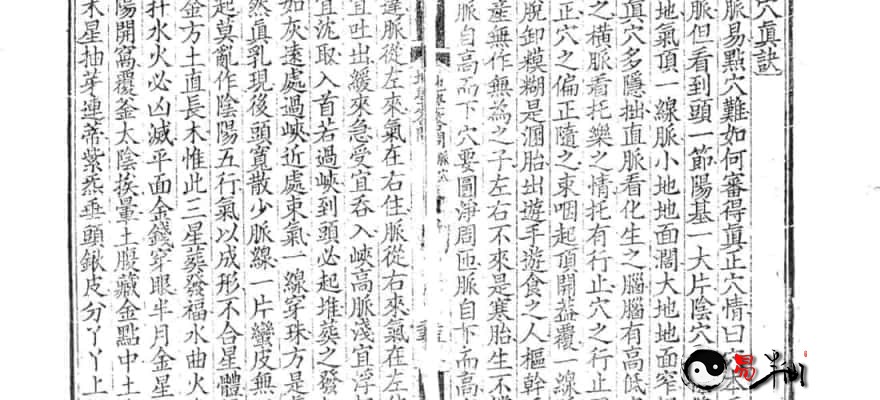 穴真訣
脈易點穴難如何審得真正穴情曰
脈但看到頭一節陽基一大片陰穴
地氣頂一線脈小地地面濶大地地面窄
真穴多隱拙直脈看化生之腦腦有高低
之橫脈看托樂之情托有行止穴之行止
正穴之偏正隨之束咽起頂開葢覆一線
脫卸糢糊是涸胎出遊手遊食之人樞幹
產無作無為之子左右不來是寒胎生不
脈自高而下穴要圓淨周匝脈自下而高
違脈從左來氣在右住脈從右來氣在左
宜吐出緩來急受宜吞入峽高脈淺宜浮
宜沈取入首若過峽到頭必起堆葬之發
如灰遠處過峽近處束氣一線穿珠方是
然真乳現後頭寬散少脈線一片蠻皮無
起莫亂作陰陽五行氣以成形不合星體
金方土直長木惟此三星葬發福水曲火
扦水火必凶滅平面金錢穿眼半月金星
陽開窩覆釜太陰挨暈土腹藏金點中土
木星抽芽連蒂紫炁垂頭鍬皮分丫丫上
易